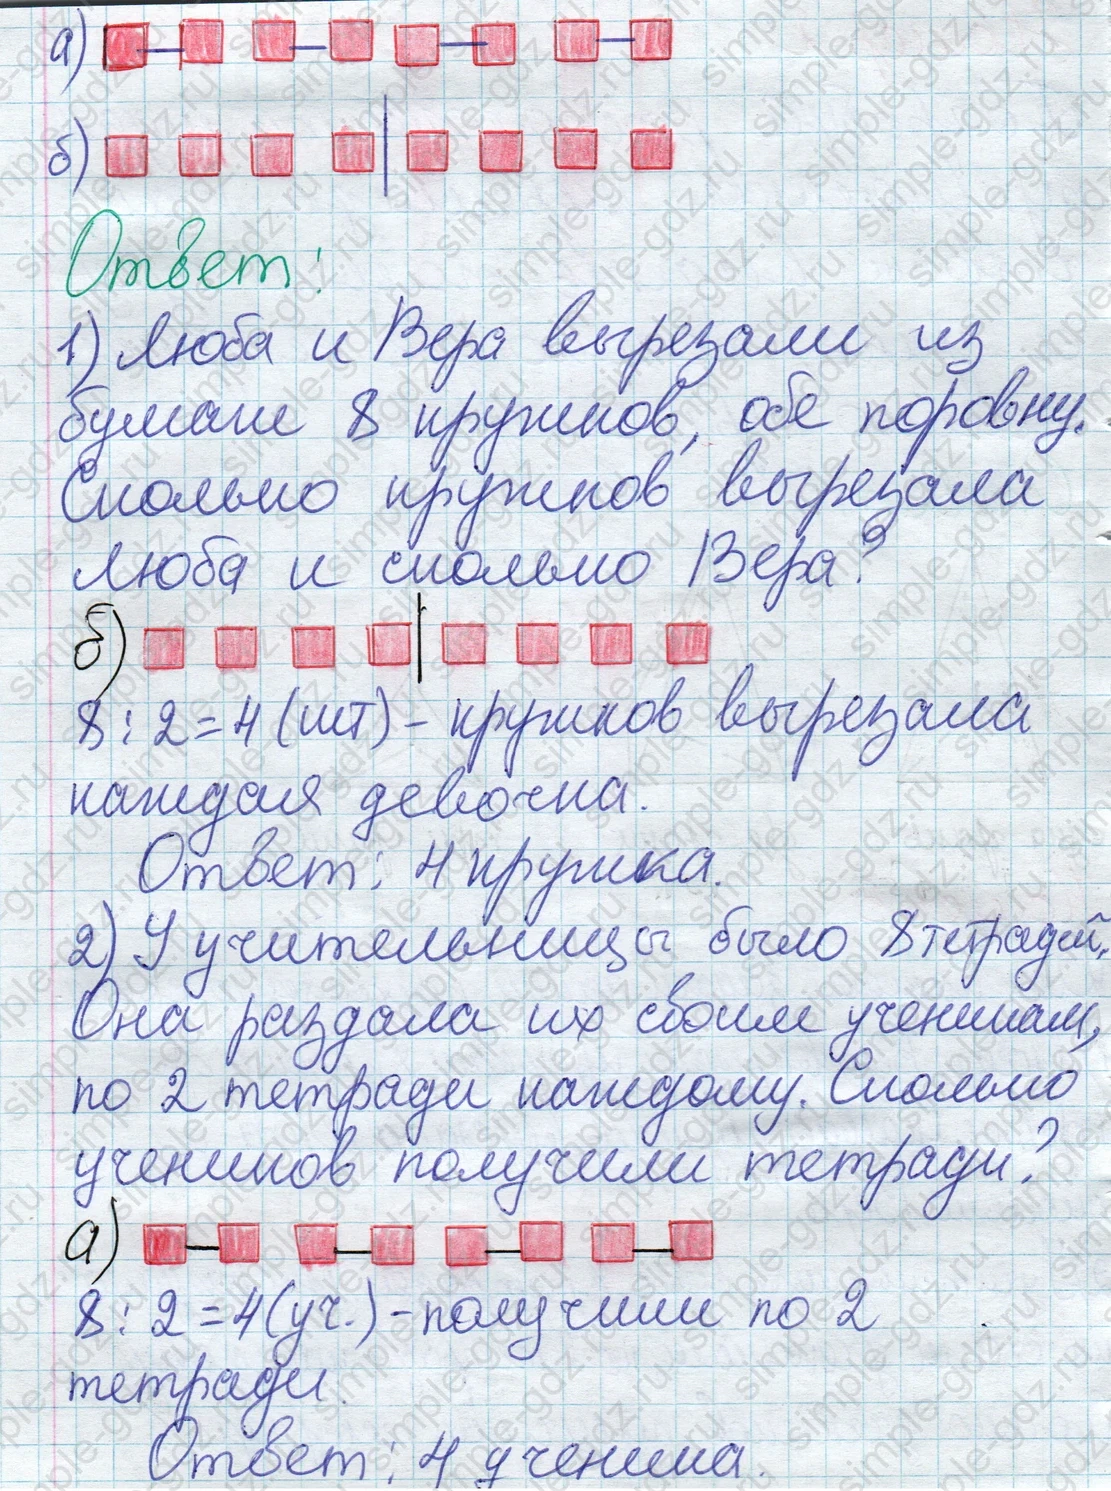 а)
б)
Ответ:
1) Люба и Вера вырезали из
бумаги 8 кружков, обе поровну.
Сколько кружков вырезала
Люба и сколько Вера?
б)
8 : 2 = 4 (шт) - кружков вырезала
каждая девочка.
Ответ: 4 кружка.
2) У учительницы было 8 тетрадей.
Она раздала их своим ученикам,
по 2 тетради каждому. Сколько
учеников получили тетради?
а)
8 : 2 = 4 (уч.) - получили по 2
тетради.
Ответ: 4 ученика.
simple-gdz.ru